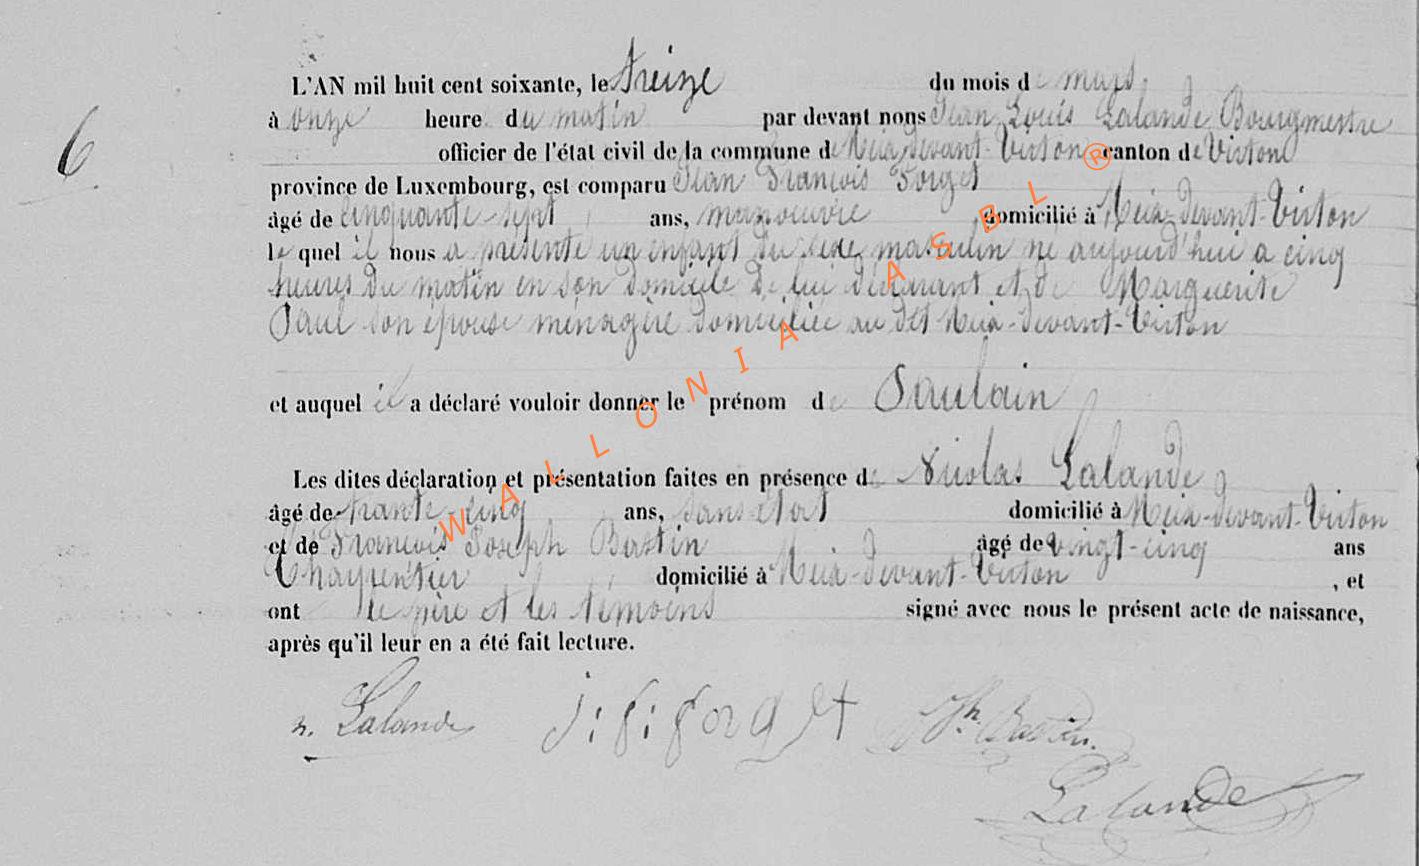 6.
L'AN mil huit cent soixante, le treize du mois de mars,
à onze heure du matin par devant nous Jean Louis Lalande Bourgmestre
officier de l'état civil de la commune de Meix-devant-Virton canton de Virton
province de Luxembourg, est comparu Jean François Forget
âgé de cinquante-sept ans, manoeuvre domicilié à Meix-devant-Virton
lequel il nous a présenté un enfant du sexe masculin né aujourd'hui à cinq
heures du matin en son domicile de lui déclarant et de Marguerite
Paul son épouse ménagère domiciliée au dit Meix-devant-Virton
et auquel il a déclaré vouloir donner le prénom de Paulain
Les dites déclaration et présentation faites en présence de Nicolas Lalande
âgé de trante-cinq ans, sans état domicilié à Meix-devant-Virton
et de François Joseph Bastin âgé de vingt-cinq ans
Charpentier domicilié à Meix-devant-Virton , et
ont le père et les témoins signé avec nous le présent acte de naissance,
après qu'il leur en a été fait lecture.
n. Lalande j : f : forget Jh. Bastin.
Lalande
WALLONIA ASBL ®